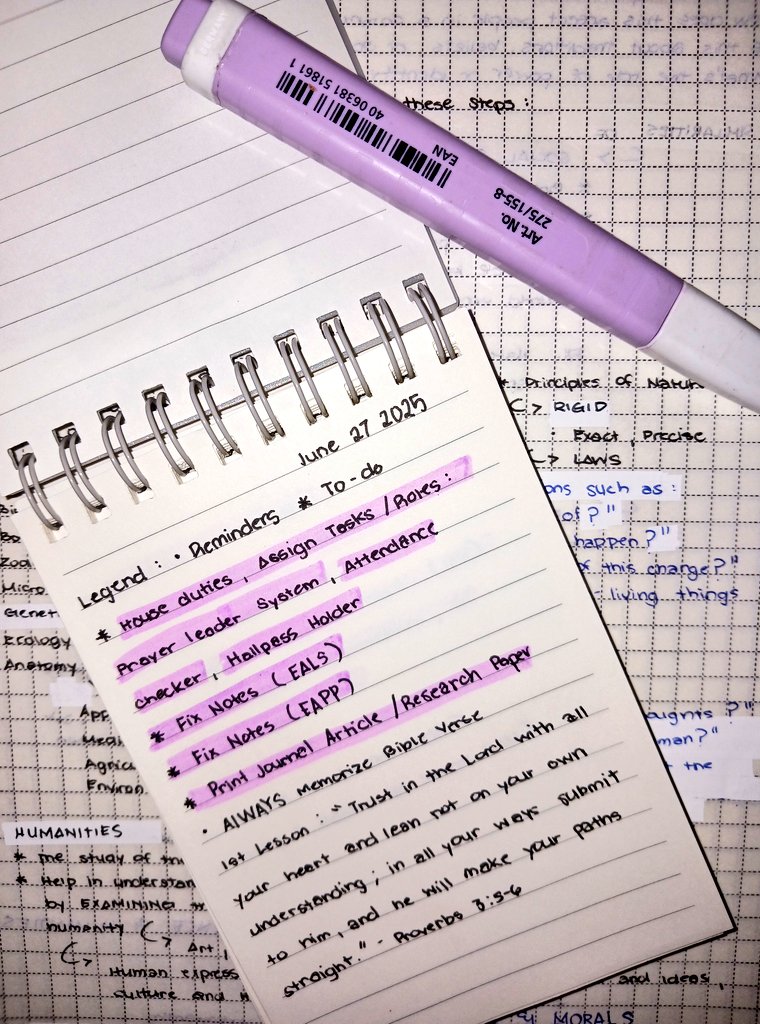 these steps :
40 06381 51861 1
EAN
Art. No.
275/155-8
Principles of Natur
RIGID
: Exact, Precise
LAWS
ons such as :
of ? "
happen ? "
this change? "
living things
June 27 2025
Legend : • Reminders * To-do
* House duties, Assign Tasks / Roles :
Prayer leader system, Attendance
checker, Hallpass Holder
* Fix Notes (EALS)
* Fix Notes (EAPP)
* Print Journal Article / Research Paper
• AlWAYS Memorize Bible Verse
1st Lesson : " Trust in the Lord with all
your heart and lean not on your own
understanding ; in all your ways submit
to him, and he will make your paths
straight." - Proverbs 3:5-6
Micro
Genet
Ecology
Anatomy
App
Agric
Environ
HUMANITIES
* the study of the
* Help in understan
by EXAMINING
humanity
Art,
Human express
culture and
man? "
the
and ideas,
MORALS